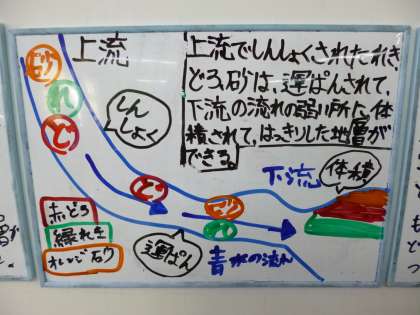 上流
上流でしんしょくされたれき、
どろ、砂は、運ぱんされて、
下流の流れの弱い所に、体
積されて、はっきりした地層が
できる。
砂
れ
ど
しん
しょく
ど
砂
れ
運ぱん
下流
体積
赤どろ
緑れき
オレンジ石少
青水の流れ